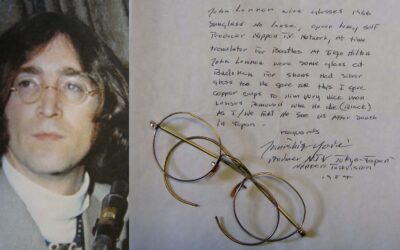 John Lennon wire glasses 1966
Sunglass No Lense, given to my self
Producer Nippon T.V. Network, At time
translator for Beatles At Tokyo Hilton
John Lennon wore some glass at
Budokan for shows had silver
glass too He gave me this I gave
copper cups to Him very nice man
Lenses removed when he die (Black)
As I/we feel He see us After Death
in Japan -
regards
Producer NTV Tokyo-Japan
Nippon Television